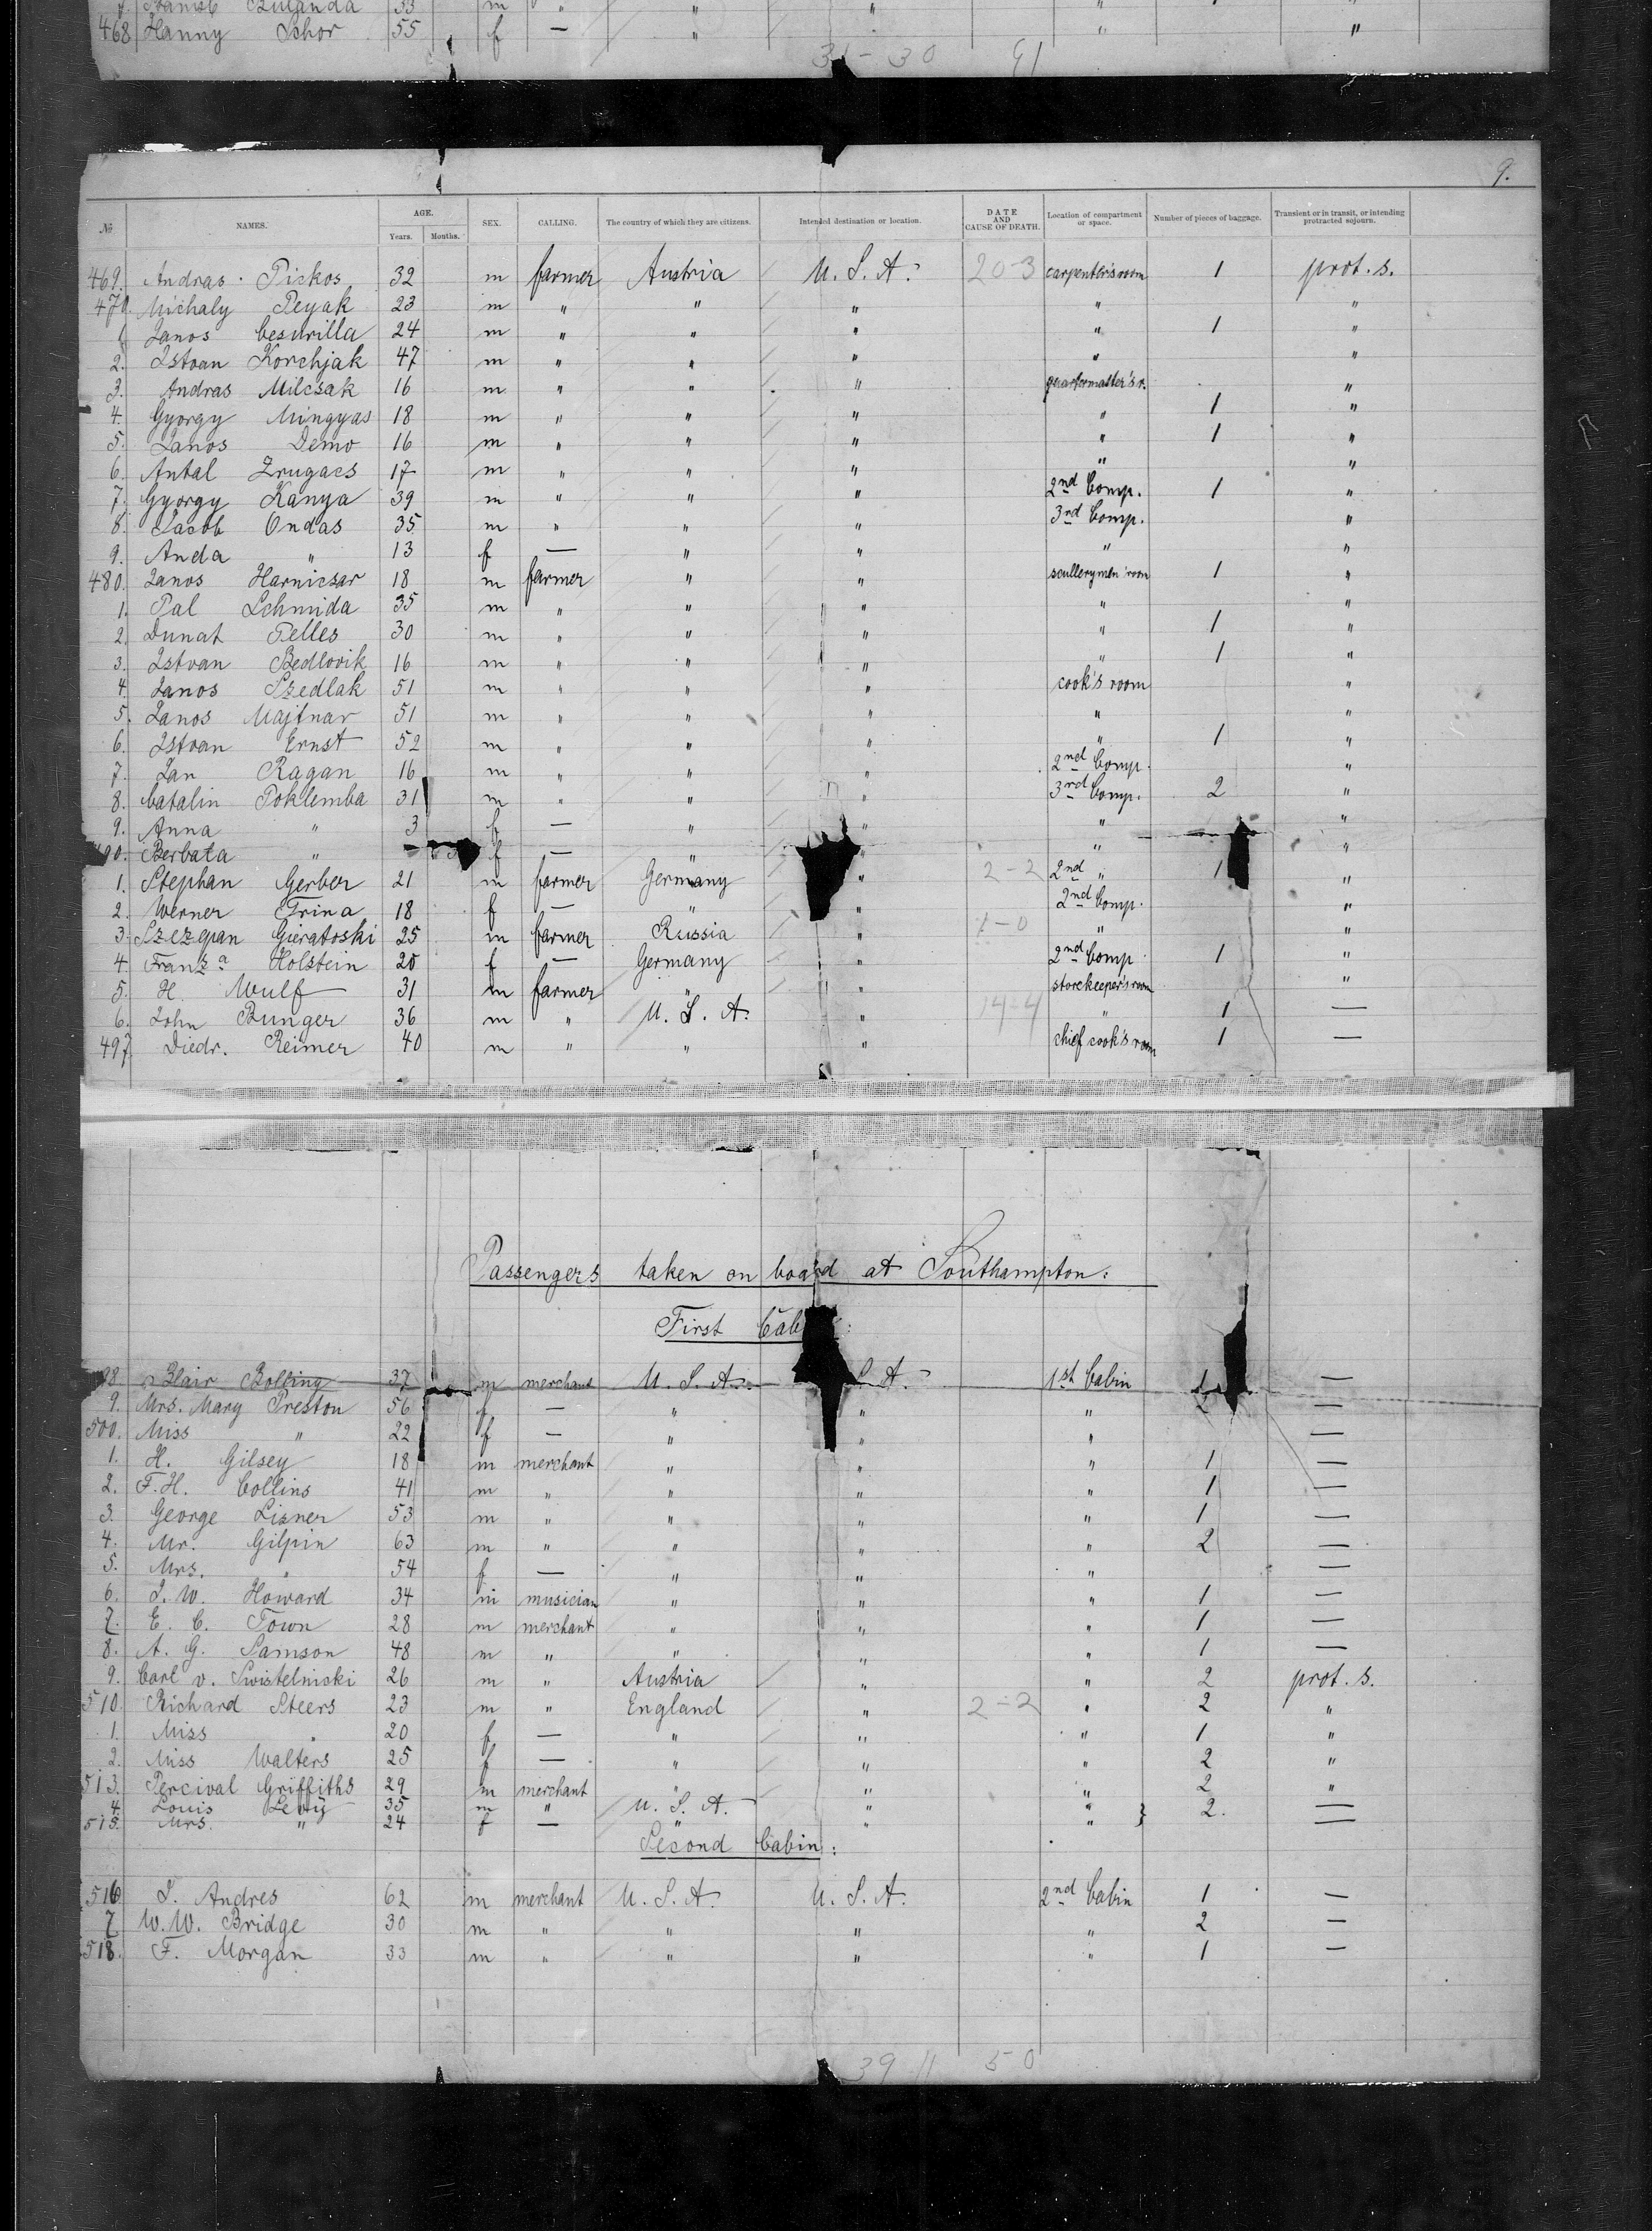 468 Hanny Schor 55 f — " " " "
31-30 91
9.
№ NAMES. AGE. Years. Months. SEX. CALLING. The country of which they are citizens. Intended destination or location. DATE AND CAUSE OF DEATH. Location of compartment or space. Number of pieces of baggage. Transient or in transit, or intending protracted sojourn.
469. Andras Pickos 32 m farmer Austria U. S. A. 20-3 carpenter's room 1 prot. s.
470. Michaly Peyak 23 m " " " " "
1. Janos Cesurilla 24 m " " " " 1 "
2. Istvan Korchjak 47 m " " " " "
3. Andras Milcsak 16 m " " " quartermaster's r. "
4. Gyorgy Mingyas 18 m " " " " 1 "
5. Janos Demo 16 m " " " " 1 "
6. Antal Zrugacs 17 m " " " " "
7. Gyorgy Kanya 39 m " " " 2nd Comp. 1 "
8. Jacob Ondas 35 m " " " 3rd Comp. "
9. Anda " 13 f — " " " "
480. Janos Harnicsar 18 m farmer " " scullerymen's room 1 "
1. Pal Schmida 35 m " " " " "
2. Dunat Pelles 30 m " " " " 1 "
3. Istvan Bedlovik 16 m " " " " 1 "
4. Janos Szedlak 51 m " " " cook's room "
5. Janos Majtnar 51 m " " " " "
6. Istvan Ernst 52 m " " " " 1 "
7. Jan Ragan 16 m " " " 2nd Comp. "
8. Catalin Poklemba 31 m " " " 3rd Comp. 2 "
9. Anna " 3 f — " " " "
490. Berbata " f — " " "
1. Stephan Gerber 21 m farmer Germany " 2-2 2nd " 1 "
2. Werner Trina 18 f — " " 2nd Comp. "
3. Szezepan Gieratoski 25 m farmer Russia " 1-0 " "
4. Franza Holstein 20 f — Germany " 2nd Comp 1 "
5. H. Wulf 31 m farmer " " storekeeper's room "
6. John Bunger 36 m " U. S. A. " 14-4 " 1 —
497. Diedr. Reimer 40 m " " " chief cook's room 1 —
Passengers taken on board at Southampton:
First Cab
98 Blair Bolling 37 m merchant U. S. A. S. A. 1st Cabin 1 —
9. Mrs. Mary Preston 56 f — " " " 2 —
500. Miss " 22 f — " " " —
1. H. Gilsey 18 m merchant " " " 1 —
2. F. H. Collins 41 m " " " " 1 —
3. George Lisner 53 m " " " " 1 —
4. Mr. Gilpin 63 m " " " " 2 —
5. Mrs. " 54 f — " " " —
6. J. W. Howard 34 m musician " " " 1 —
7. E. C. Town 28 m merchant " " " 1 —
8. A. G. Samson 48 m " " " " 1 —
9. Carl v. Swistelnicki 26 m " Austria " " 2 prot. s.
510. Richard Steers 23 m " England " 2-2 " 2 "
1. Miss " 20 f — " " " 1 "
2. Miss Walters 25 f — " " " 2 "
513. Percival Griffiths 29 m merchant " " " 2 "
4. Louis Levy 35 m " U. S. A. " " } 2. —
515. Mrs. " 24 f — " " " —
Second Cabin:
516 J. Andres 62 m merchant U. S. A. U. S. A. 2nd Cabin 1 —
7 W. W. Bridge 30 m " " " " 2 —
518. F. Morgan 33 m " " " " 1 —
39 11 50